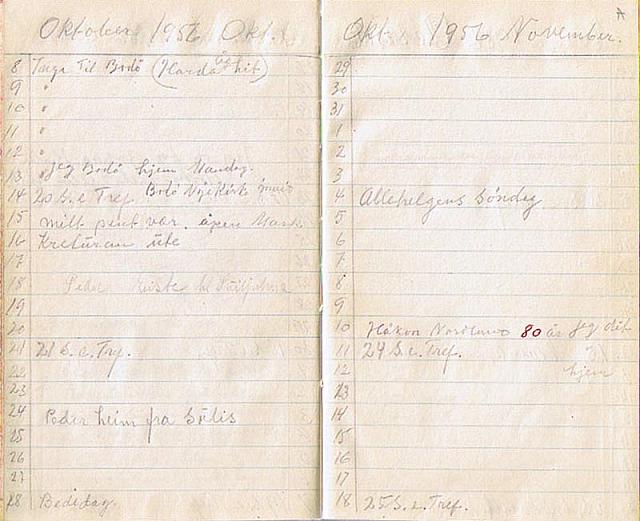 Oktober 1956 Okt.
8 Inga til Bodö (Harda hit)
9 "
10 "
11 "
12 "
13 " Jeg Bodö hjem Mandag.
14 20 S. e Tref. Bodö Kirke
15 milt pent vær. åpen Mark
16 Kretüran üte
17
18 Peder
19
20
21 21 S. e. Tref.
22
23
24 Peder heim fra
25
26
27
28 Bededag.
Okt. 1956 November.
29
30
31
1
2
3
4 Allehelgens Söndag
5
6
7
8
9
10 Håkon Nordland 80 år Jeg dit
11 24 S. e. Tref.
12 hjem
13
14
15
16
17
18 25 S. e. Tref.